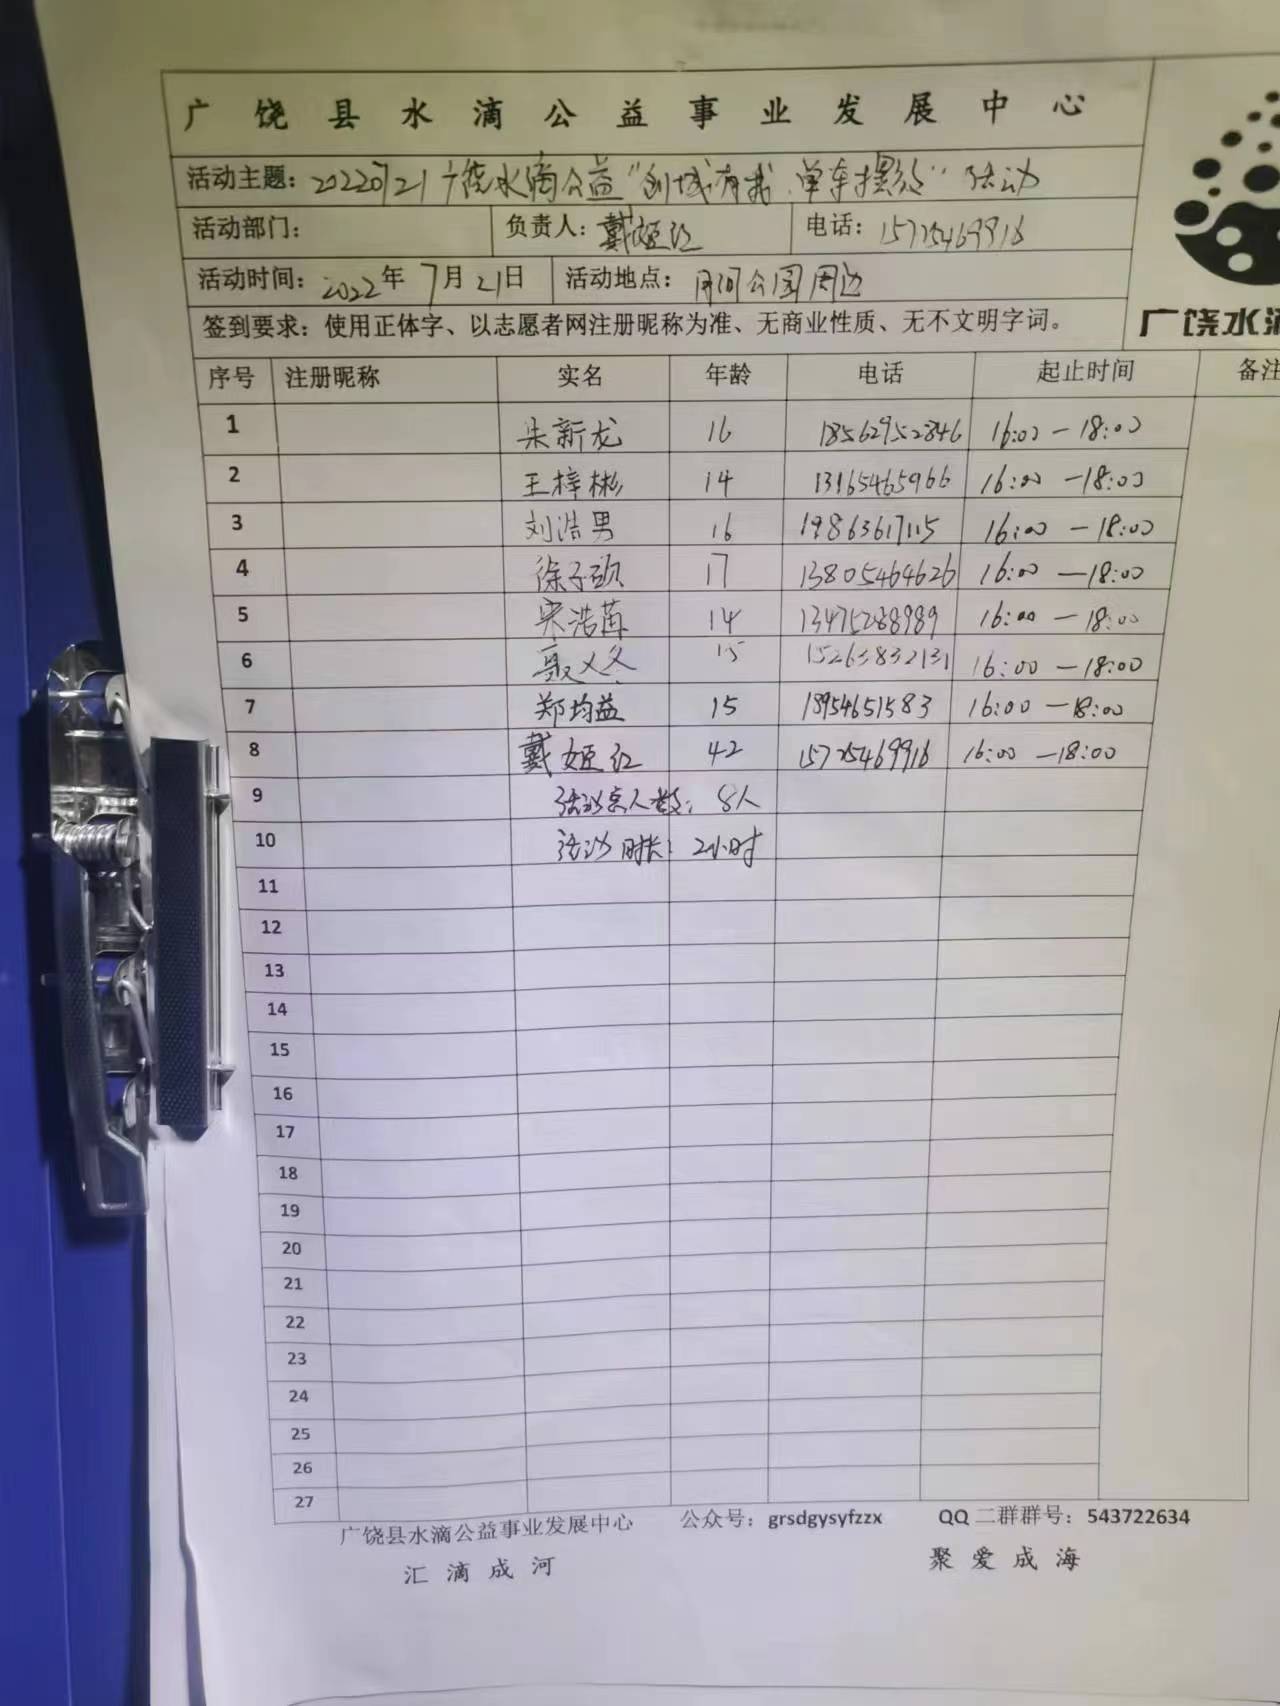 广饶县水滴公益事业发展中心
活动主题：20220721广饶水滴公益“创城有我，单车摆放”活动
活动部门： 负责人：戴姬红 电话：15725469916
活动时间：2022年7月21日 活动地点：月河公园周边
签到要求：使用正体字、以志愿者网注册昵称为准、无商业性质、无不文明字词。
广饶水滴
序号 注册昵称 实名 年龄 电话 起止时间 备注
1 朱新龙 16 18562952846 16:00－18:00
2 王梓彬 14 13165465966 16:00－18:00
3 刘浩男 16 19863617115 16:00－18:00
4 徐子硕 17 13805464626 16:00－18:00
5 宋浩苒 14 13475288989 16:00－18:00
6 聂义冬 15 15263832131 16:00－18:00
7 郑均益 15 18954651583 16:00－18:00
8 戴姬红 42 15725469916 16:00－18:00
9 活动总人数：8人
10 活动时长：2小时
11
12
13
14
15
16
17
18
19
20
21
22
23
24
25
26
27
广饶县水滴公益事业发展中心 公众号：grsdgysyfzzx QQ二群群号：543722634
汇滴成河 聚爱成海